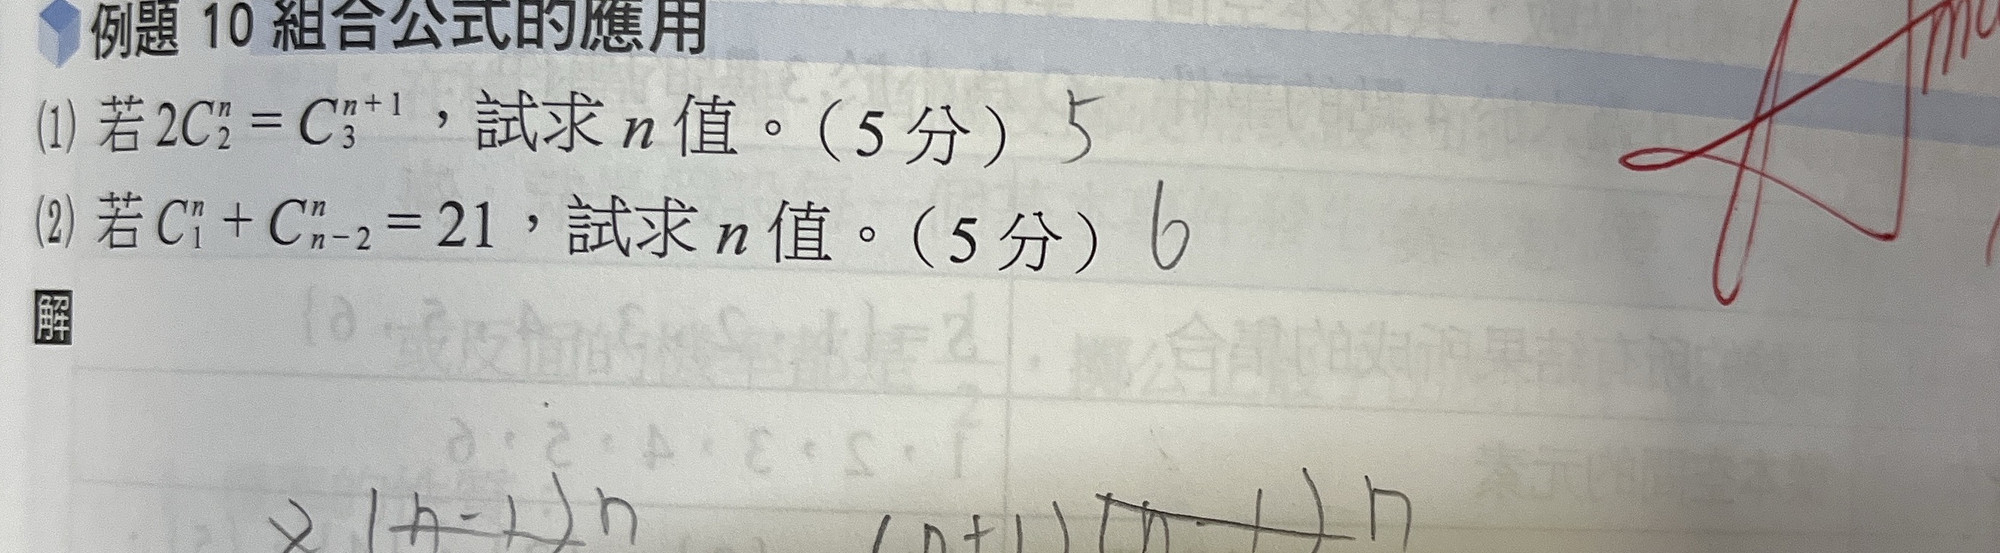 例題 10 組合公式的應用
(1) 若 2C₂ⁿ = C₃ⁿ⁺¹，試求 n 值。（5 分） 5
(2) 若 C₁ⁿ + Cₙ₋₂ⁿ = 21，試求 n 值。（5 分） 6
解
2(n-1)n (n+1)(n-1)n